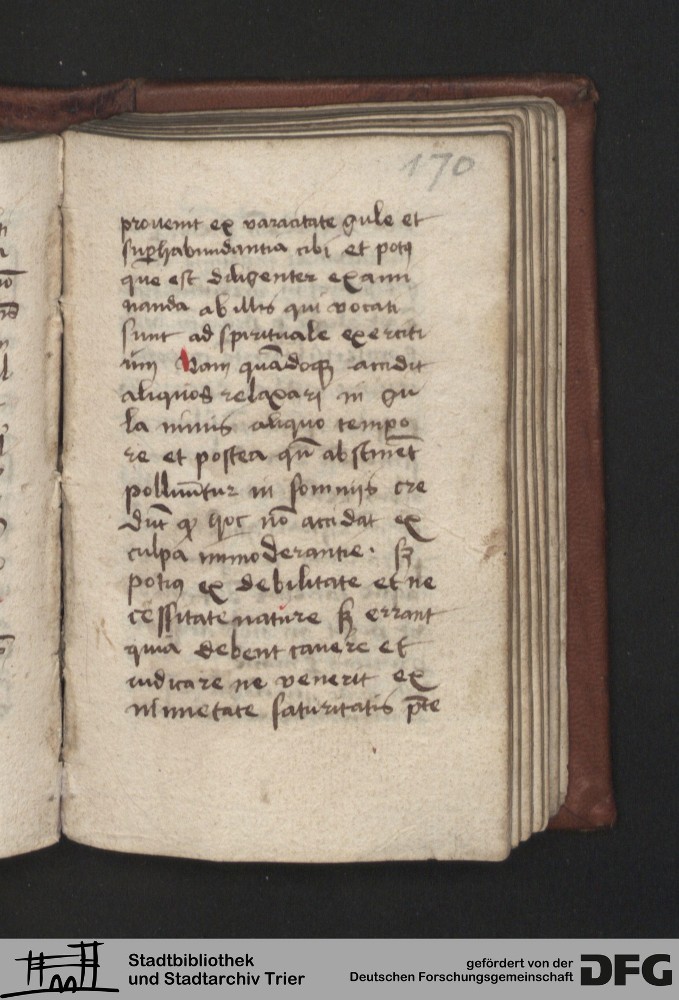 170
prouenit ex varacitate gule et
suꝑhabundantia cibi et potꝰ
que est diligenter exami
nanda ab illis qui vocati
sunt ad spirituale exerciti
um Nam quādoqꝫ accidit
aliquos relaxari in gu
la nimis aliquo tempo
re et postea qn̄ abstinēt
polluūtur in somniis cre
dūt ꝙ hoc nō accidat ex
culpa immoderantie · sꝫ
potiꝰ ex debilitate et ne
cessitate nature sꝫ errant
quia debent cauere et
iudicare ne venerit ex
nimietate saturitatis p̄te
Stadtbibliothek
und Stadtarchiv Trier
gefördert von der
Deutschen Forschungsgemeinschaft
DFG